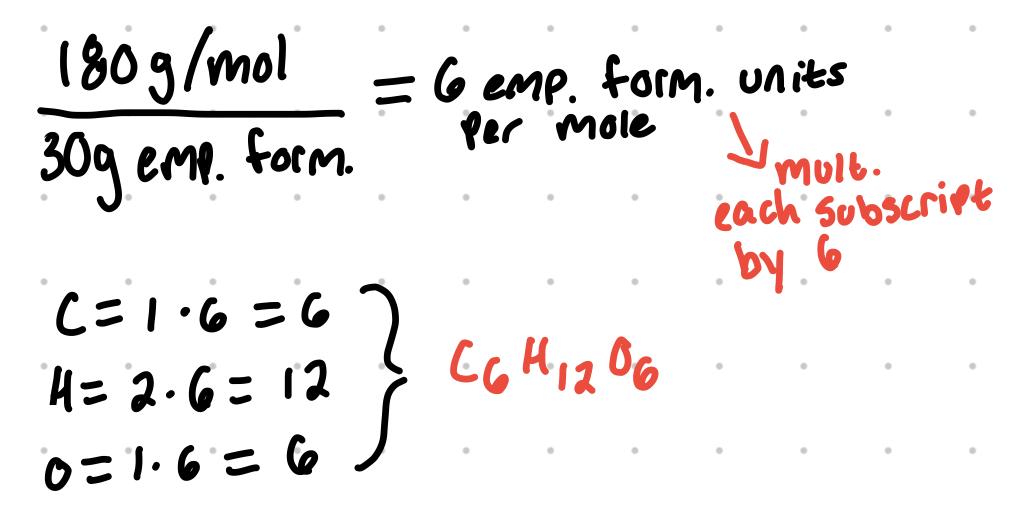 180g/mol
30g emp. form.
= 6 emp. form. units
per mole
mult.
each subscript
by 6
C = 1 · 6 = 6
H = 2 · 6 = 12
O = 1 · 6 = 6
C₆H₁₂O₆